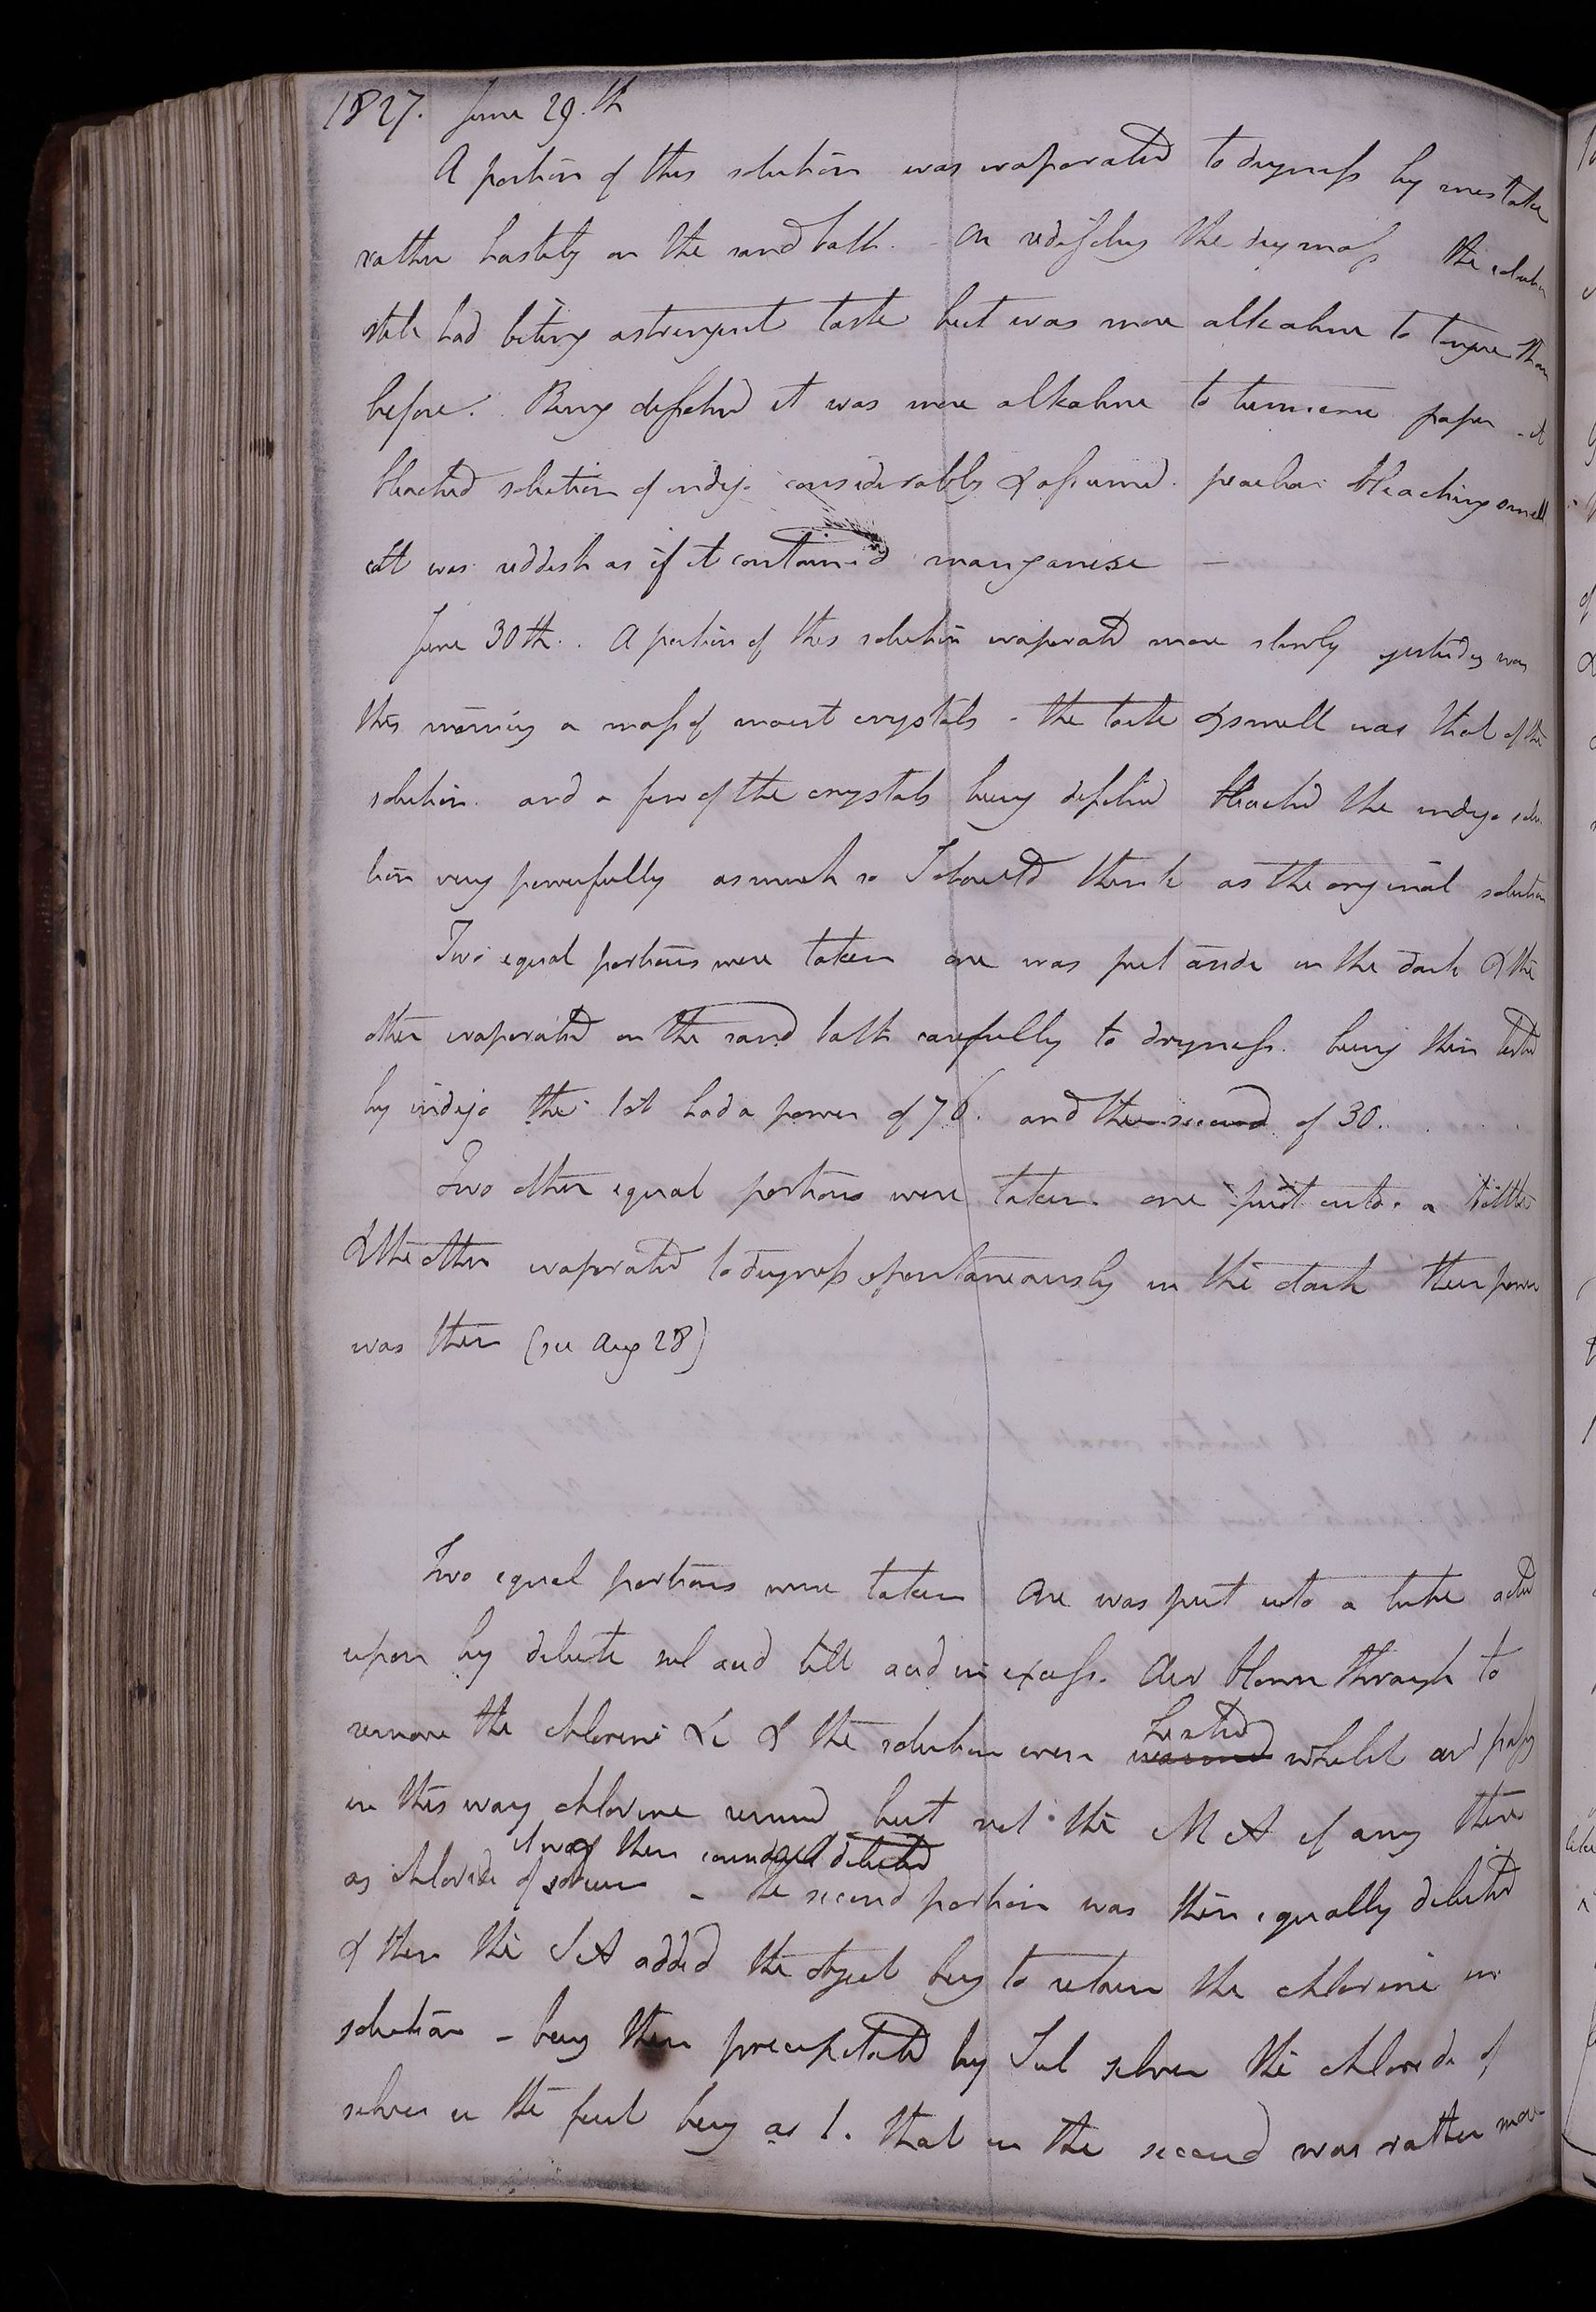 1827. June 29.th
A portion of this solution was evaporated to dryness by mistake
rather hastily on the sand bath. - On redissolving the dry mass the solution
still had biting astringent taste but was more alkaline to tongue than
before. Being dissolved it was more alkaline to turmeric paper - it
bleached solution of indigo considerably & assumed peculiar bleaching smell
it was reddish as if it contained manganese -
June 30th. A portion of this solution evaporated more slowly yesterday was
this morning a mass of moist crystals - the taste & smell was that of the
solution. and a few of the crystals being dissolved bleached the indigo solu
tion very powerfully as much so I should think as the original solution
Two equal portions were taken one was put aside in the dark & the
other evaporated on the sand bath carefully to dryness. being then tested
by indigo the 1st had a power of 76. and the second of 30.
Two other equal portions were taken one put into a bottle
& the other evaporated to dryness spontaneously in the dark their power
was then (see Aug 28)
Two equal portions were taken One was put into a tube acted
upon by dilute sul acid till acid in excess. Air blown through to
remove the chlorine &c & the solution even heated whilst air passg
in this way chlorine removed but not the M A if any there
as chloride of sodium - it was then considered diluted the second portion was then equally diluted
& then the S A added the object being to retain the chlorine in
solution - being then precipitated by Sul silver the chloride of
silver in the first being as 1. that in the second was rather more